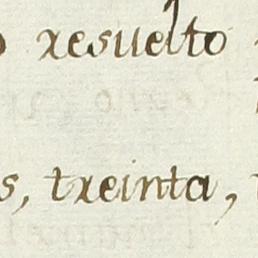 o resuelto
s, treinta,